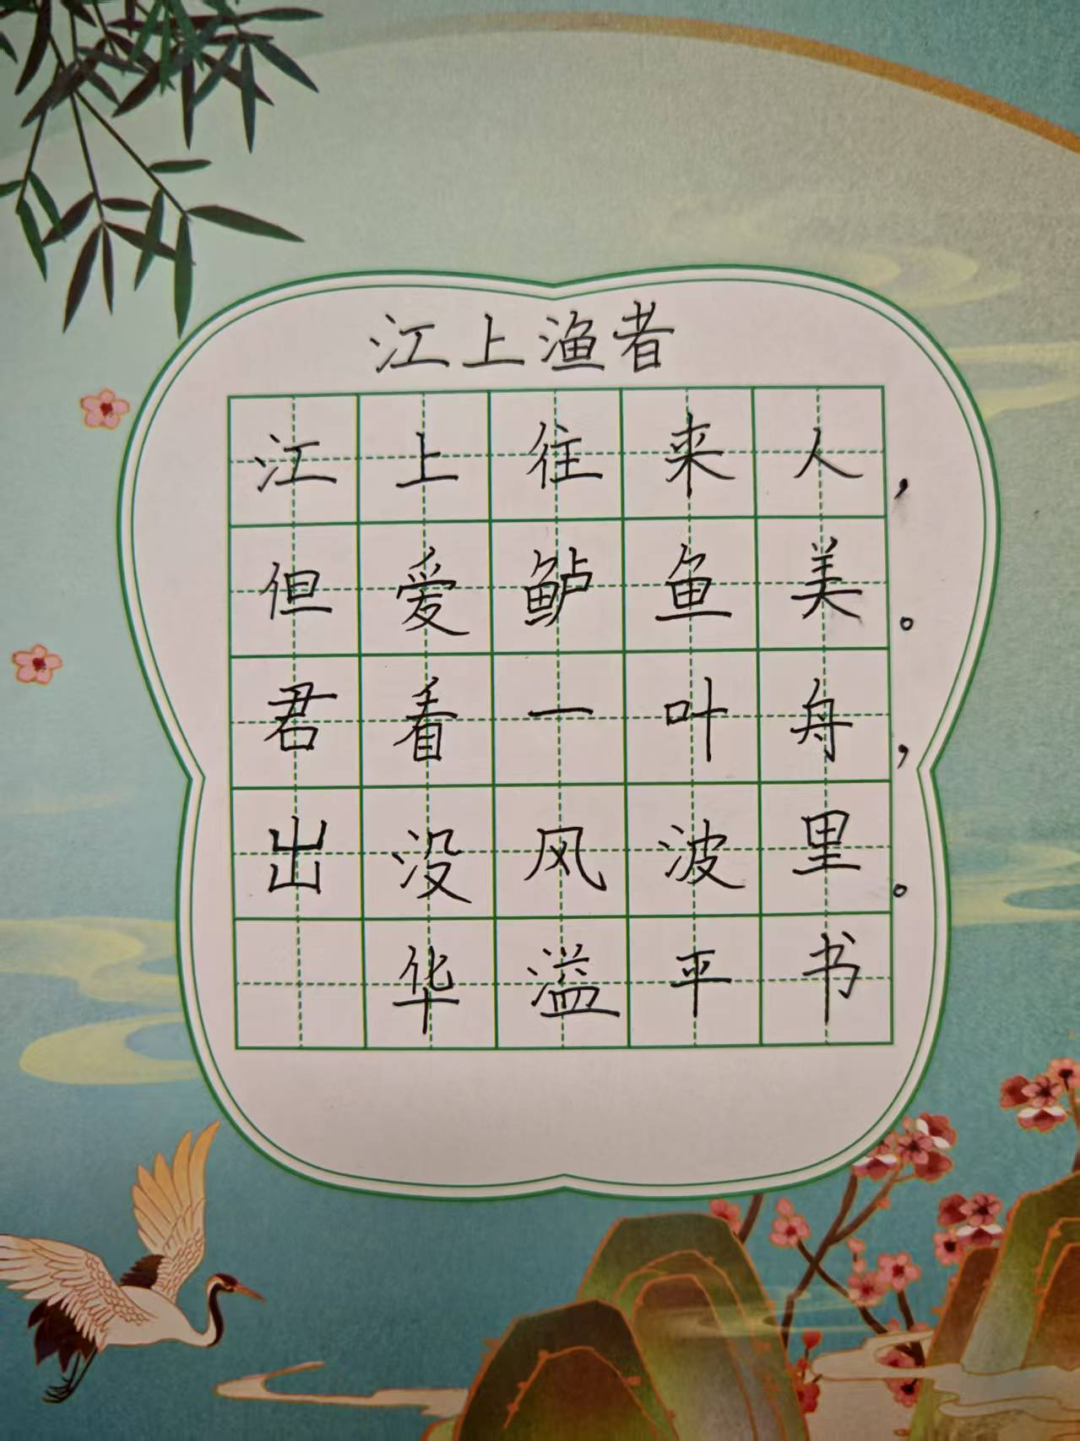 江上渔者
江上往来人，
但爱鲈鱼美。
君看一叶舟，
出没风波里。
华溢平书